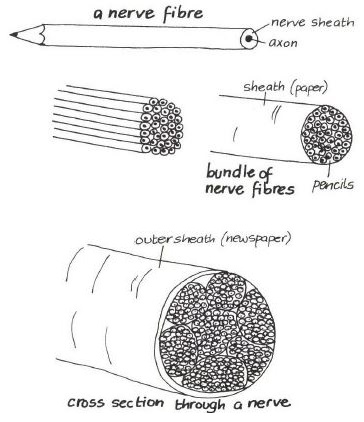 a nerve fibre
nerve sheath
axon
sheath (paper)
bundle of
nerve fibres
pencils
outer sheath (newspaper)
cross section through a nerve